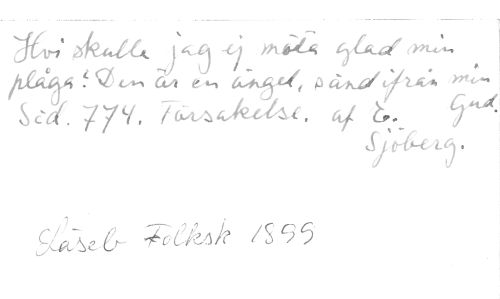 Hvi skulle jag ej möta glad min
plåga! Den är en ängel, sänd ifrån min
Gud.
Sid. 774. Försakelse. af E.
Sjöberg.
Läseb Folksk 1899